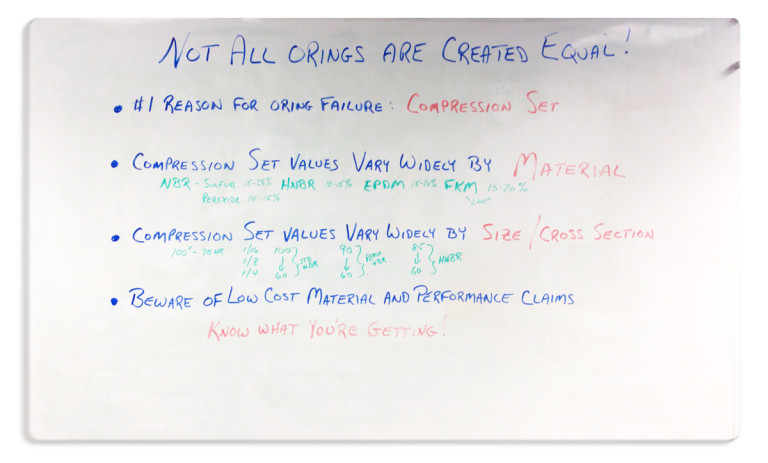 NOT ALL ORINGS ARE CREATED EQUAL!
• #1 REASON FOR ORING FAILURE: COMPRESSION SET
• COMPRESSION SET VALUES VARY WIDELY BY MATERIAL
NBR - SULFUR 15-25% HNBR 10-15% EPDM FKM 15-20%
PEROXIDE 10-15%
200°
• COMPRESSION SET VALUES VARY WIDELY BY SIZE/CROSS SECTION
100° - 70 HR 1/16 100 90 85
1/8 ↓ STD NBR ↓ NBR ↓ HNBR
1/4 60 60 60
• BEWARE OF LOW COST MATERIAL AND PERFORMANCE CLAIMS
KNOW WHAT YOU'RE GETTING!